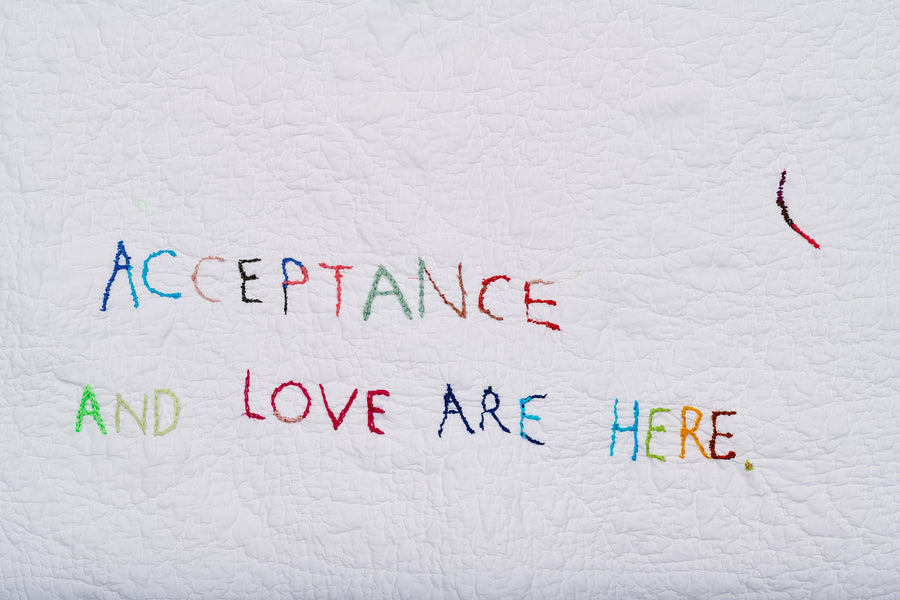 ACCEPTANCE
AND LOVE ARE HERE.